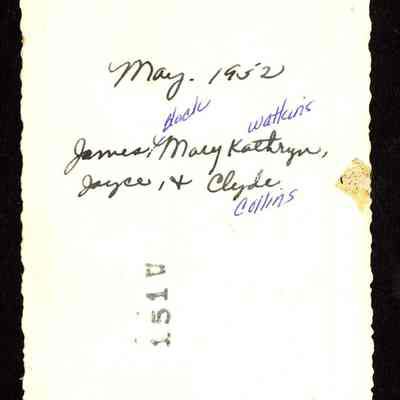 May. 1952
Watkins
James, Mary Kathryn,
Joyce, & Clyde
Collins
151U